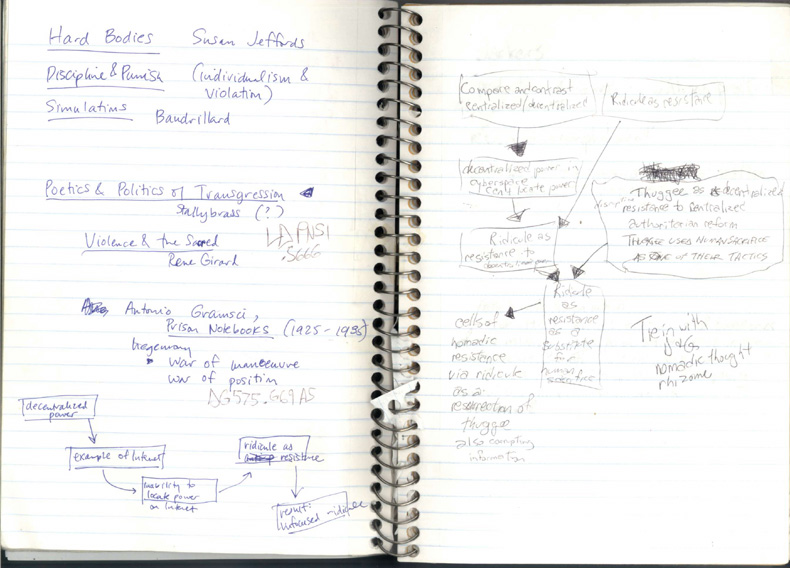 Hard Bodies Susan Jeffords
Discipline & Punish (individualism &
violation)
Simulations
Baudrillard
Poetics & Politics of Transgression
Stallybrass (?)
Violence & the Sacred
René Girard
Antonio Gramsci,
Prison Notebooks (1925-1935)
hegemony
war of maneuvre
war of position
DG575.G69A5
decentralized
power
example of Internet
inability to
locate power
on Internet
ridicule as
resistance
result:
unfocused
Compare and contrast
sentralized/decentralized
Ridicule as resistance
decentralized power in
cyberspace
can't locate power
Ridicule as
resistance to
Thuggee as decentralized
resistance to sentralized
authoritarian reform
Thuggee used human sacrafice
as one of their tactics
Ridicule
as
resistance
as a
substitute
for
human
sacrifice
cells of
nomadic
resistance
via ridicule
as a
resurrection of
thuggee
also corrupting
information
Tie in with
nomadic thought
rhizome